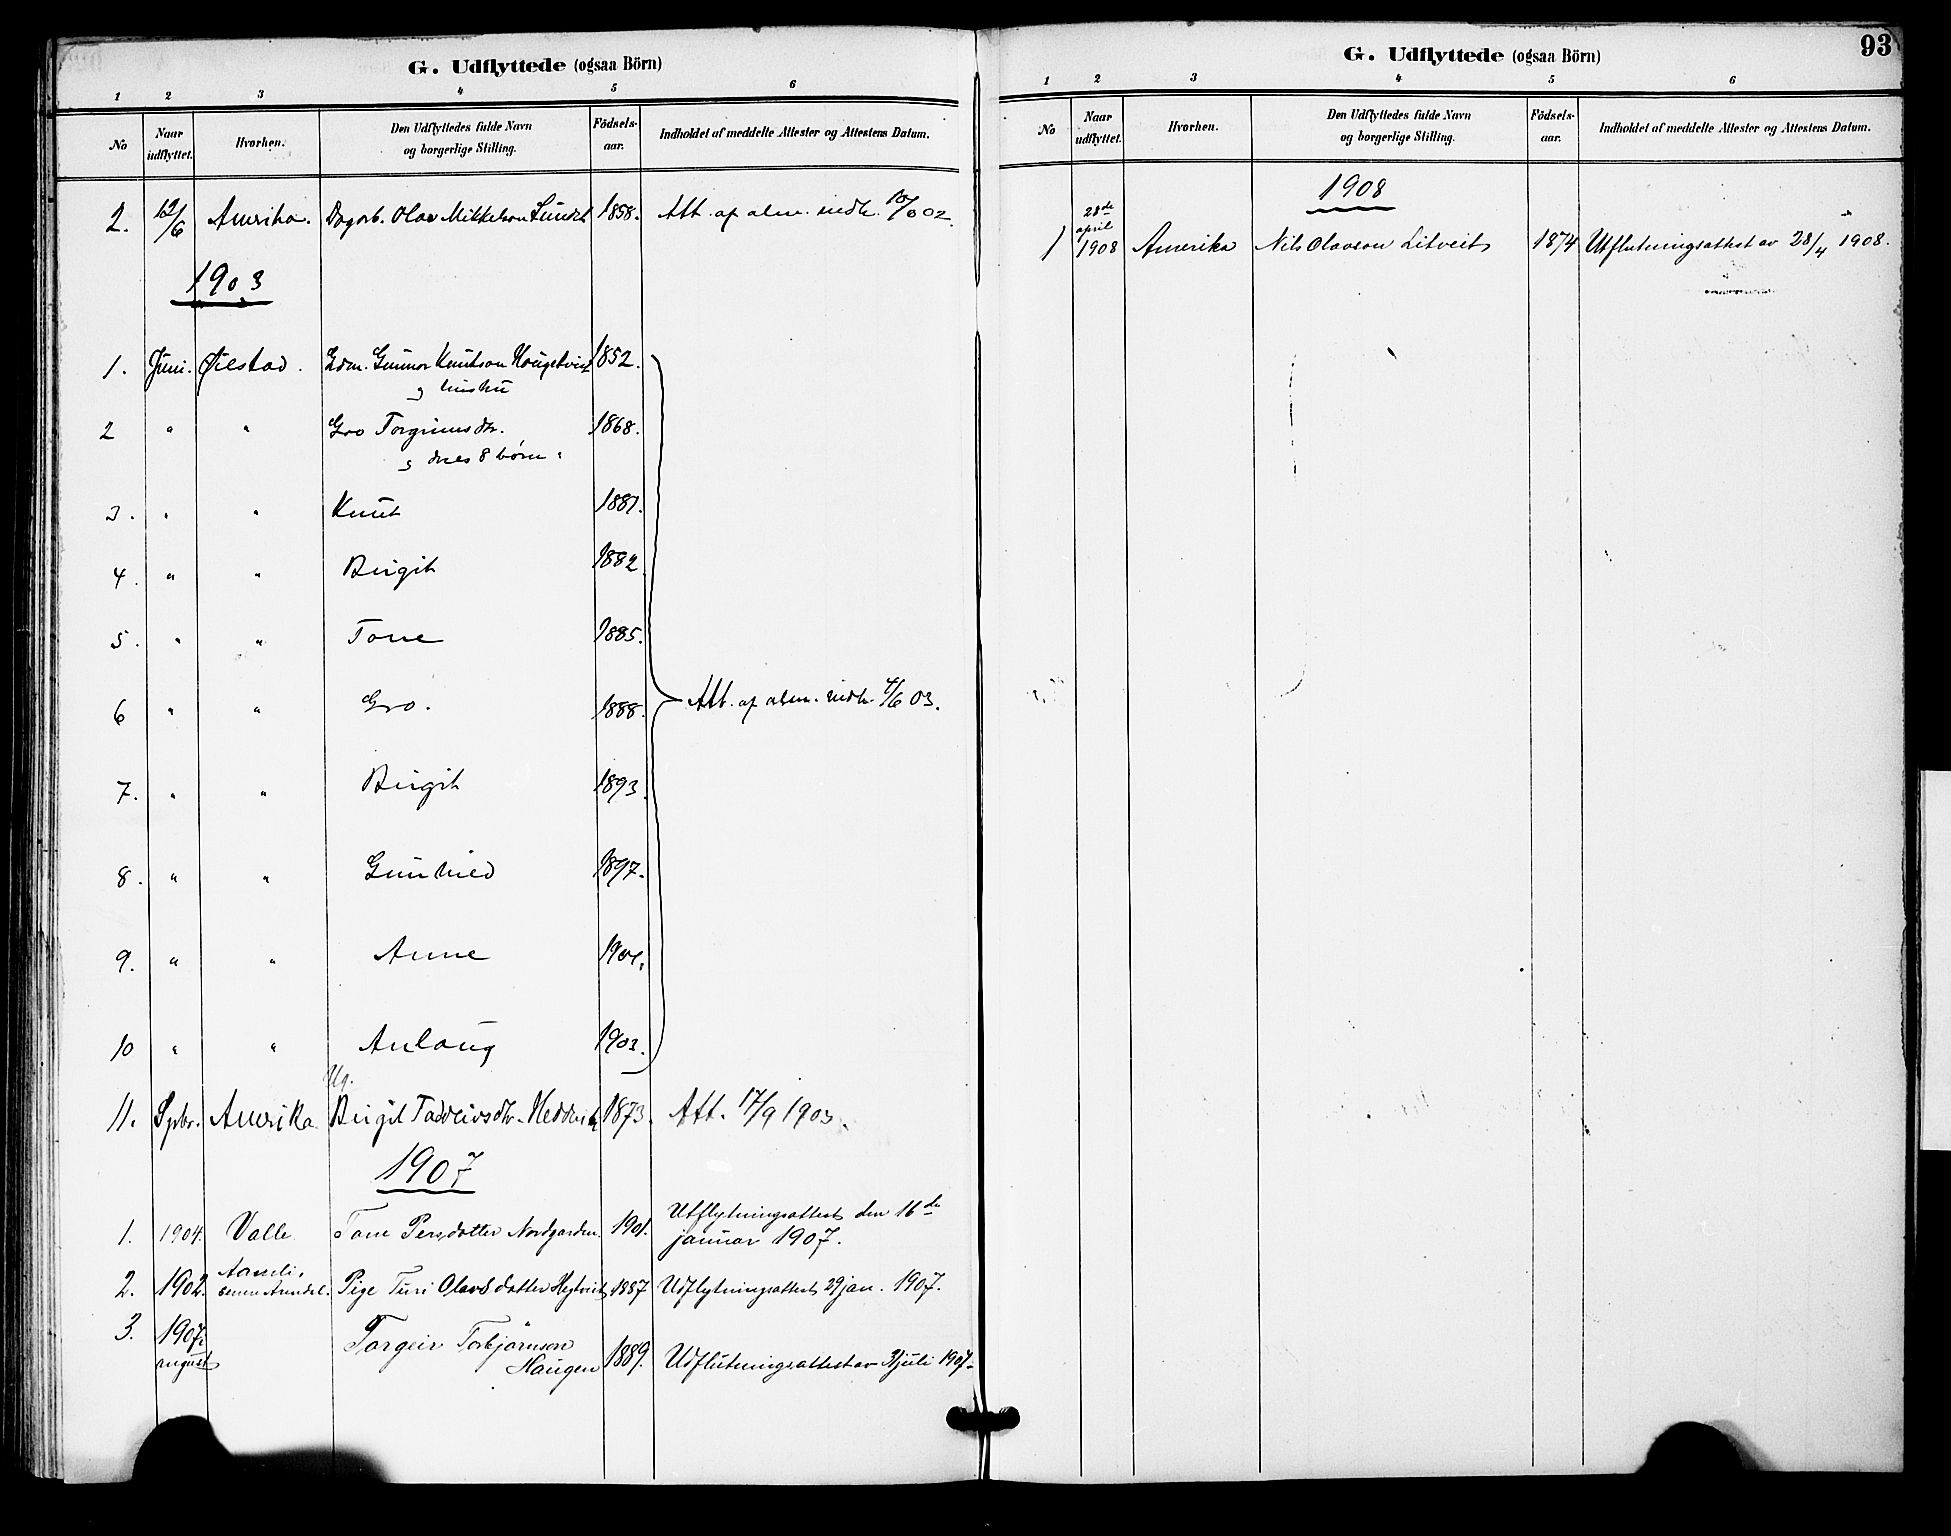 G. Udflyttede (ogsaa Börn)
1 2 3 4 5 6
No Naar udflyttet. Hvorhen. Den Udflyttedes fulde Navn og borgerlige Stilling. Födsels-aar. Indholdet af meddelte Attester og Attestens Datum.
2. 12/6 Amerika. Dagarb. Olav Mikkelson 1858. Att. af alm. indh. 02
1903
1. Juni. Øiestad. Gdm. Gunnar Knutson 1852.
og hustru
2 " " Gro Torgrimsdtr. 1868.
og deres 8 børn:
3. " " Knut 1881.
4. " " Birgit 1882
5. " " Tone 1885.
6 " " Gro. 1888. Att. af alm. indh. 4/6 03.
7. " " Birgit 1893.
8. " " Gunhild 1897.
9. " " Anne 1901.
10 " " Anlaug 1903.
Ug.
11. Spbr. Amerika Birgit Taddeivsdtr. 1873. Att. 17/9 1903.
1907
1. 1904. Valle Tone Persdotter Nordgarden. 1901. Utflytningsattest den 16de
januar 1907.
2. 1902. Pige Turi Olavsdotter 1887 Udflytningsattest 29 jan. 1907.
3. 1907. Torgeir Torbjørnson
august Haugen 1889. Udflutningsattest av juli 1907.
93
G. Udflyttede (ogsaa Börn)
1 2 3 4 5 6
No Naar udflyttet. Hvorhen. Den Udflyttedes fulde Navn og borgerlige Stilling. Födsels-aar. Indholdet af meddelte Attester og Attestens Datum.
1908
28de
april
1 1908 Amerika Nils Olavson Litveit 1874 Utflutningsattest av 28/4 1908.